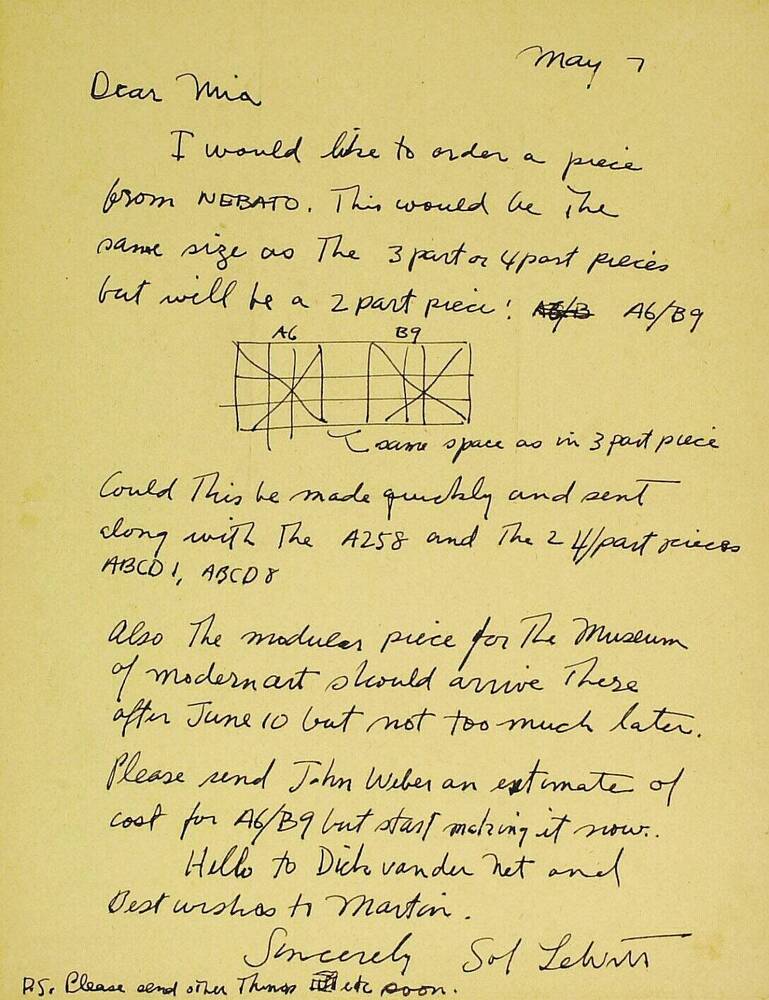 May 7
Dear Mia
I would like to order a piece
from NEBATO. This would be the
same size as the 3 part or 4 part pieces
but will be a 2 part piece! A6/B9
A6 B9
same space as in 3 part piece
Could this be made quickly and sent
along with the A258 and the 2 4/part pieces
ABCD 1, ABCD 8
Also the modular piece for the Museum
of modern art should arrive there
after June 10 but not too much later.
Please send John Weber an estimate of
cost for A6/B9 but start making it now.
Hello to Dick vander Net and
Best wishes to Martin.
Sincerely Sol LeWitt
P.S. Please send other things etc soon.